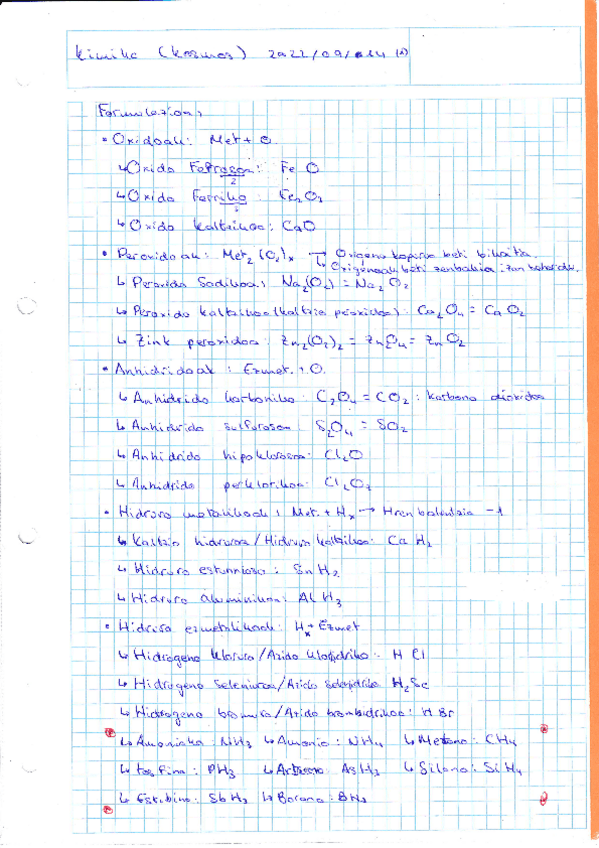 Kimika (Kosmos) 2022/09/14 (A)
Formulazioa:
• Oxidoak: Met + O.
↳ Oxido Ferrosoa: Fe O
2
↳ Oxido Ferrikoa: Fe₂O₃
3
↳ Oxido kaltzikoa: CaO
• Peroxidoak: Met₂(O₂)ₓ → Oxigeno kopurua beti bikoitia.
↳ Oxigenoak beti zenbakia izan behar du.
↳ Peroxido Sodikoa: Na₂(O₂) = Na₂O₂
↳ Peroxido kaltzikoa (kaltzio peroxidoa): Ca₂O₄ = CaO₂
↳ Zink peroxidoa: Zn₂(O₂)₂ = Zn₂O₄ = ZnO₂
• Anhidridoak: Ezmet. + O.
↳ Anhidrido karbonikoa: C₂O₄ = CO₂: karbono dioxidoa
↳ Anhidrido sulfurosoa: S₂O₄ = SO₂
↳ Anhidrido hipoklorosoa: Cl₂O
↳ Anhidrido perklorikoa: Cl₂O₇
• Hidruro metalikoak: Met. + Hₓ → H-ren balentzia -1
↳ Kaltzio hidruroa/Hidruro kaltzikoa: CaH₂
↳ Hidruro estannosoa: SnH₂
↳ Hidruro aluminikoa: AlH₃
• Hidruro ezmetalikoak: Hₓ + Ezmet
↳ Hidrogeno kloruroa/Azido klorhidrikoa: HCl
↳ Hidrogeno seleniuroa/Azido selenhidrikoa H₂Se
↳ Hidrogeno bromuroa/Azido bromhidrikoa: HBr
↳ Amoniako: NH₃ ↳ Amonio: NH₄ ↳ Metano: CH₄
↳ Fosfina: PH₃ ↳ Arsano: AsH₃ ↳ Silano: SiH₄
↳ Estibino: SbH₃ ↳ Borano: BH₃